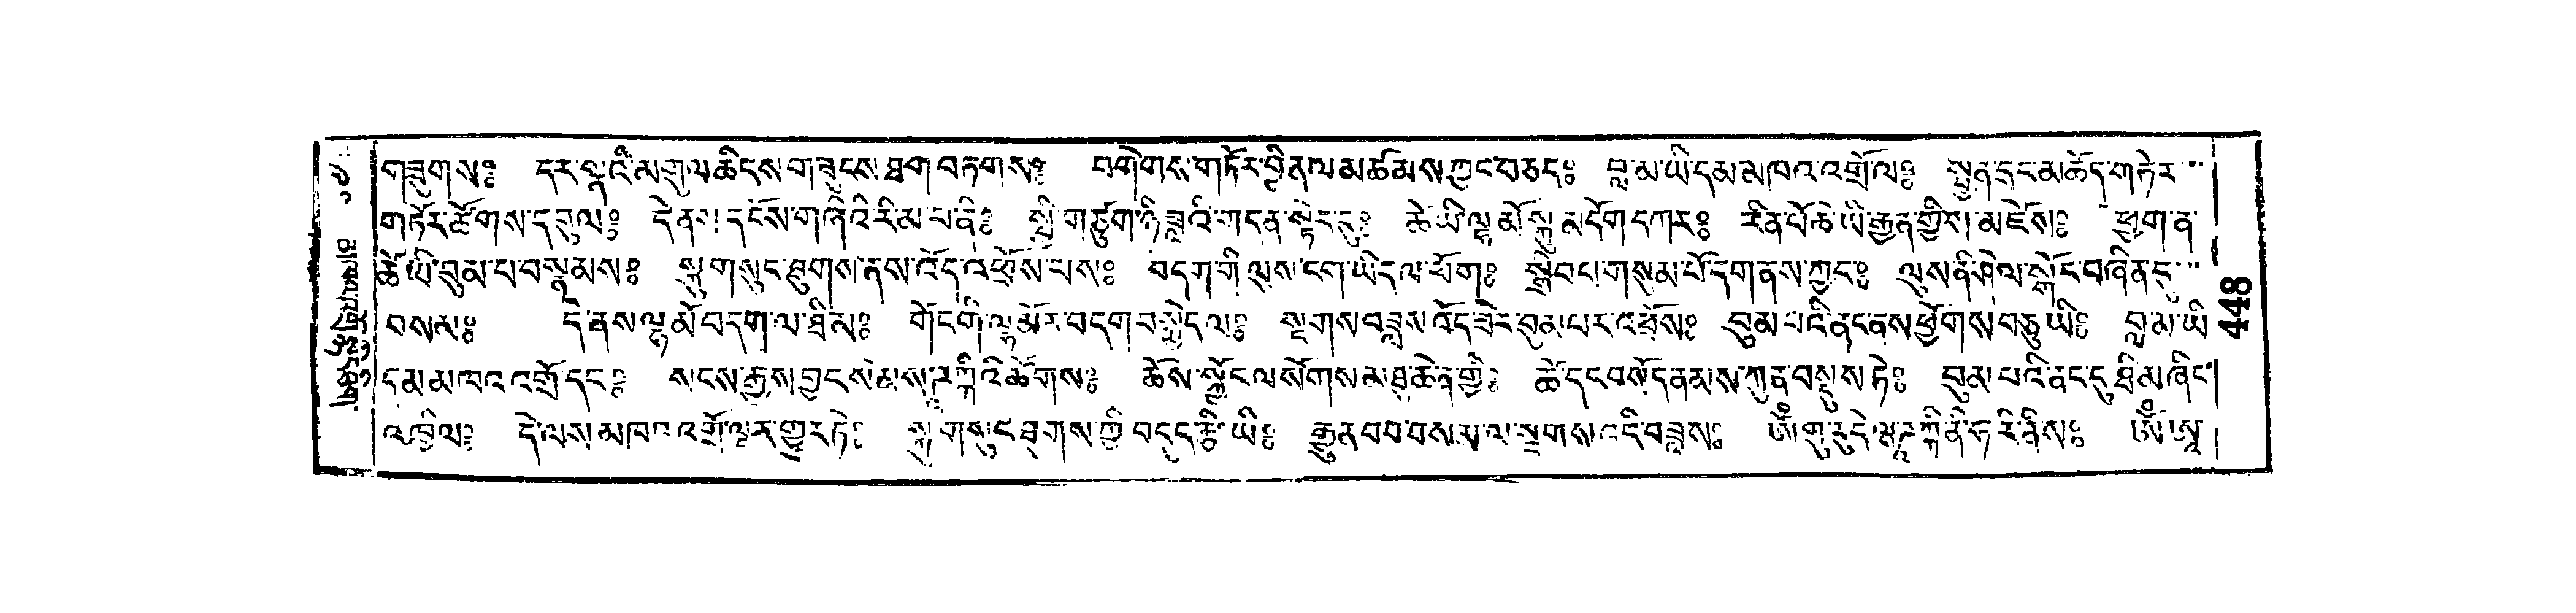 གཟུགས༔ དར་ལྔའི་མགུལ་ཆིངས་གཟུངས་ཐག་བཏགས༔ བགེགས་གཏོར་བྱིན་ལ་མཚམས་ཀྱང་བཅད༔ བླ་མ་ཡི་དམ་མཁའ་འགྲོ་ལ༔ སྤྱན་དྲང་མཆོད་གཏེར་
གཏོར་ཚོགས་དབུལ༔ དེ་ནས།དངོས་གཞིའི་རིམ་པ་ནི༔ སྤྱི་གཙུག་ཉི་ཟླའི་གདན་སྟེང་དུ༔ ཚེ་ཡི་ལྷ་མོ་སྐུ་མདོག་དཀར༔ རིན་པོ་ཆེ་ཡི་རྒྱན་གྱིས་མཛེས༔ ཕྱག་ན་
ཚེ་ཡི་བུམ་པ་བསྣམས༔ སྐུ་གསུང་ཐུགས་ནས་འོད་འཕྲོས་པས༔ བདག་གི་ལུས་ངག་ཡིད་ལ་ཕོག༔ སྒྲིབ་པ་གསུམ་པོ་དག་ནས་ཀྱང༔ ལུས་ནི་ཤེལ་སྒོང་བཞིན་དུ་
བསམ༔ དེ་ནས་ལྷ་མོ་བདག་ལ་ཐིམ༔ གོང་གི་ལྷ་མོར་བདག་བསྐྱེད་ལ༔ སྔགས་བཟླས་འོད་ཟེར་བུམ་པར་འཕྲོས༔ བུམ་པའི་ནང་ནས་ཕྱོགས་བཅུ་ཡི༔ བླ་མ་ཡི་
དམ་མཁའ་འགྲོ་དང༔ སངས་རྒྱས་བྱང་སེམས་ཌཱཀྐིའི་ཚོགས༔ ཆོས་སྐྱོང་ལ་སོགས་མཐུ་ཆེན་གྱི༔ ཚེ་དང་བསོད་ནམས་ཀུན་བསྡུས་ཏེ༔ བུམ་པའི་ནང་དུ་ཐིམ་ཞིང་
འཁྱིལ༔ དེ་ལས་མཁའ་འགྲོ་ལྔར་གྱུར་ཏེ༔ སྐུ་གསུང་ཐུགས་ཀྱི་བདུད་རྩི་ཡི༔ རྒྱུན་བབ་བསམ་ལ་སྔགས་འདི་བཟླས༔ ཨོཾ་གུ་རུ་དེ་ཝ་ཌཱཀྐི་ནི་ཧ་རི་ནི་ས༔ ཨོཾ་ཨཱ